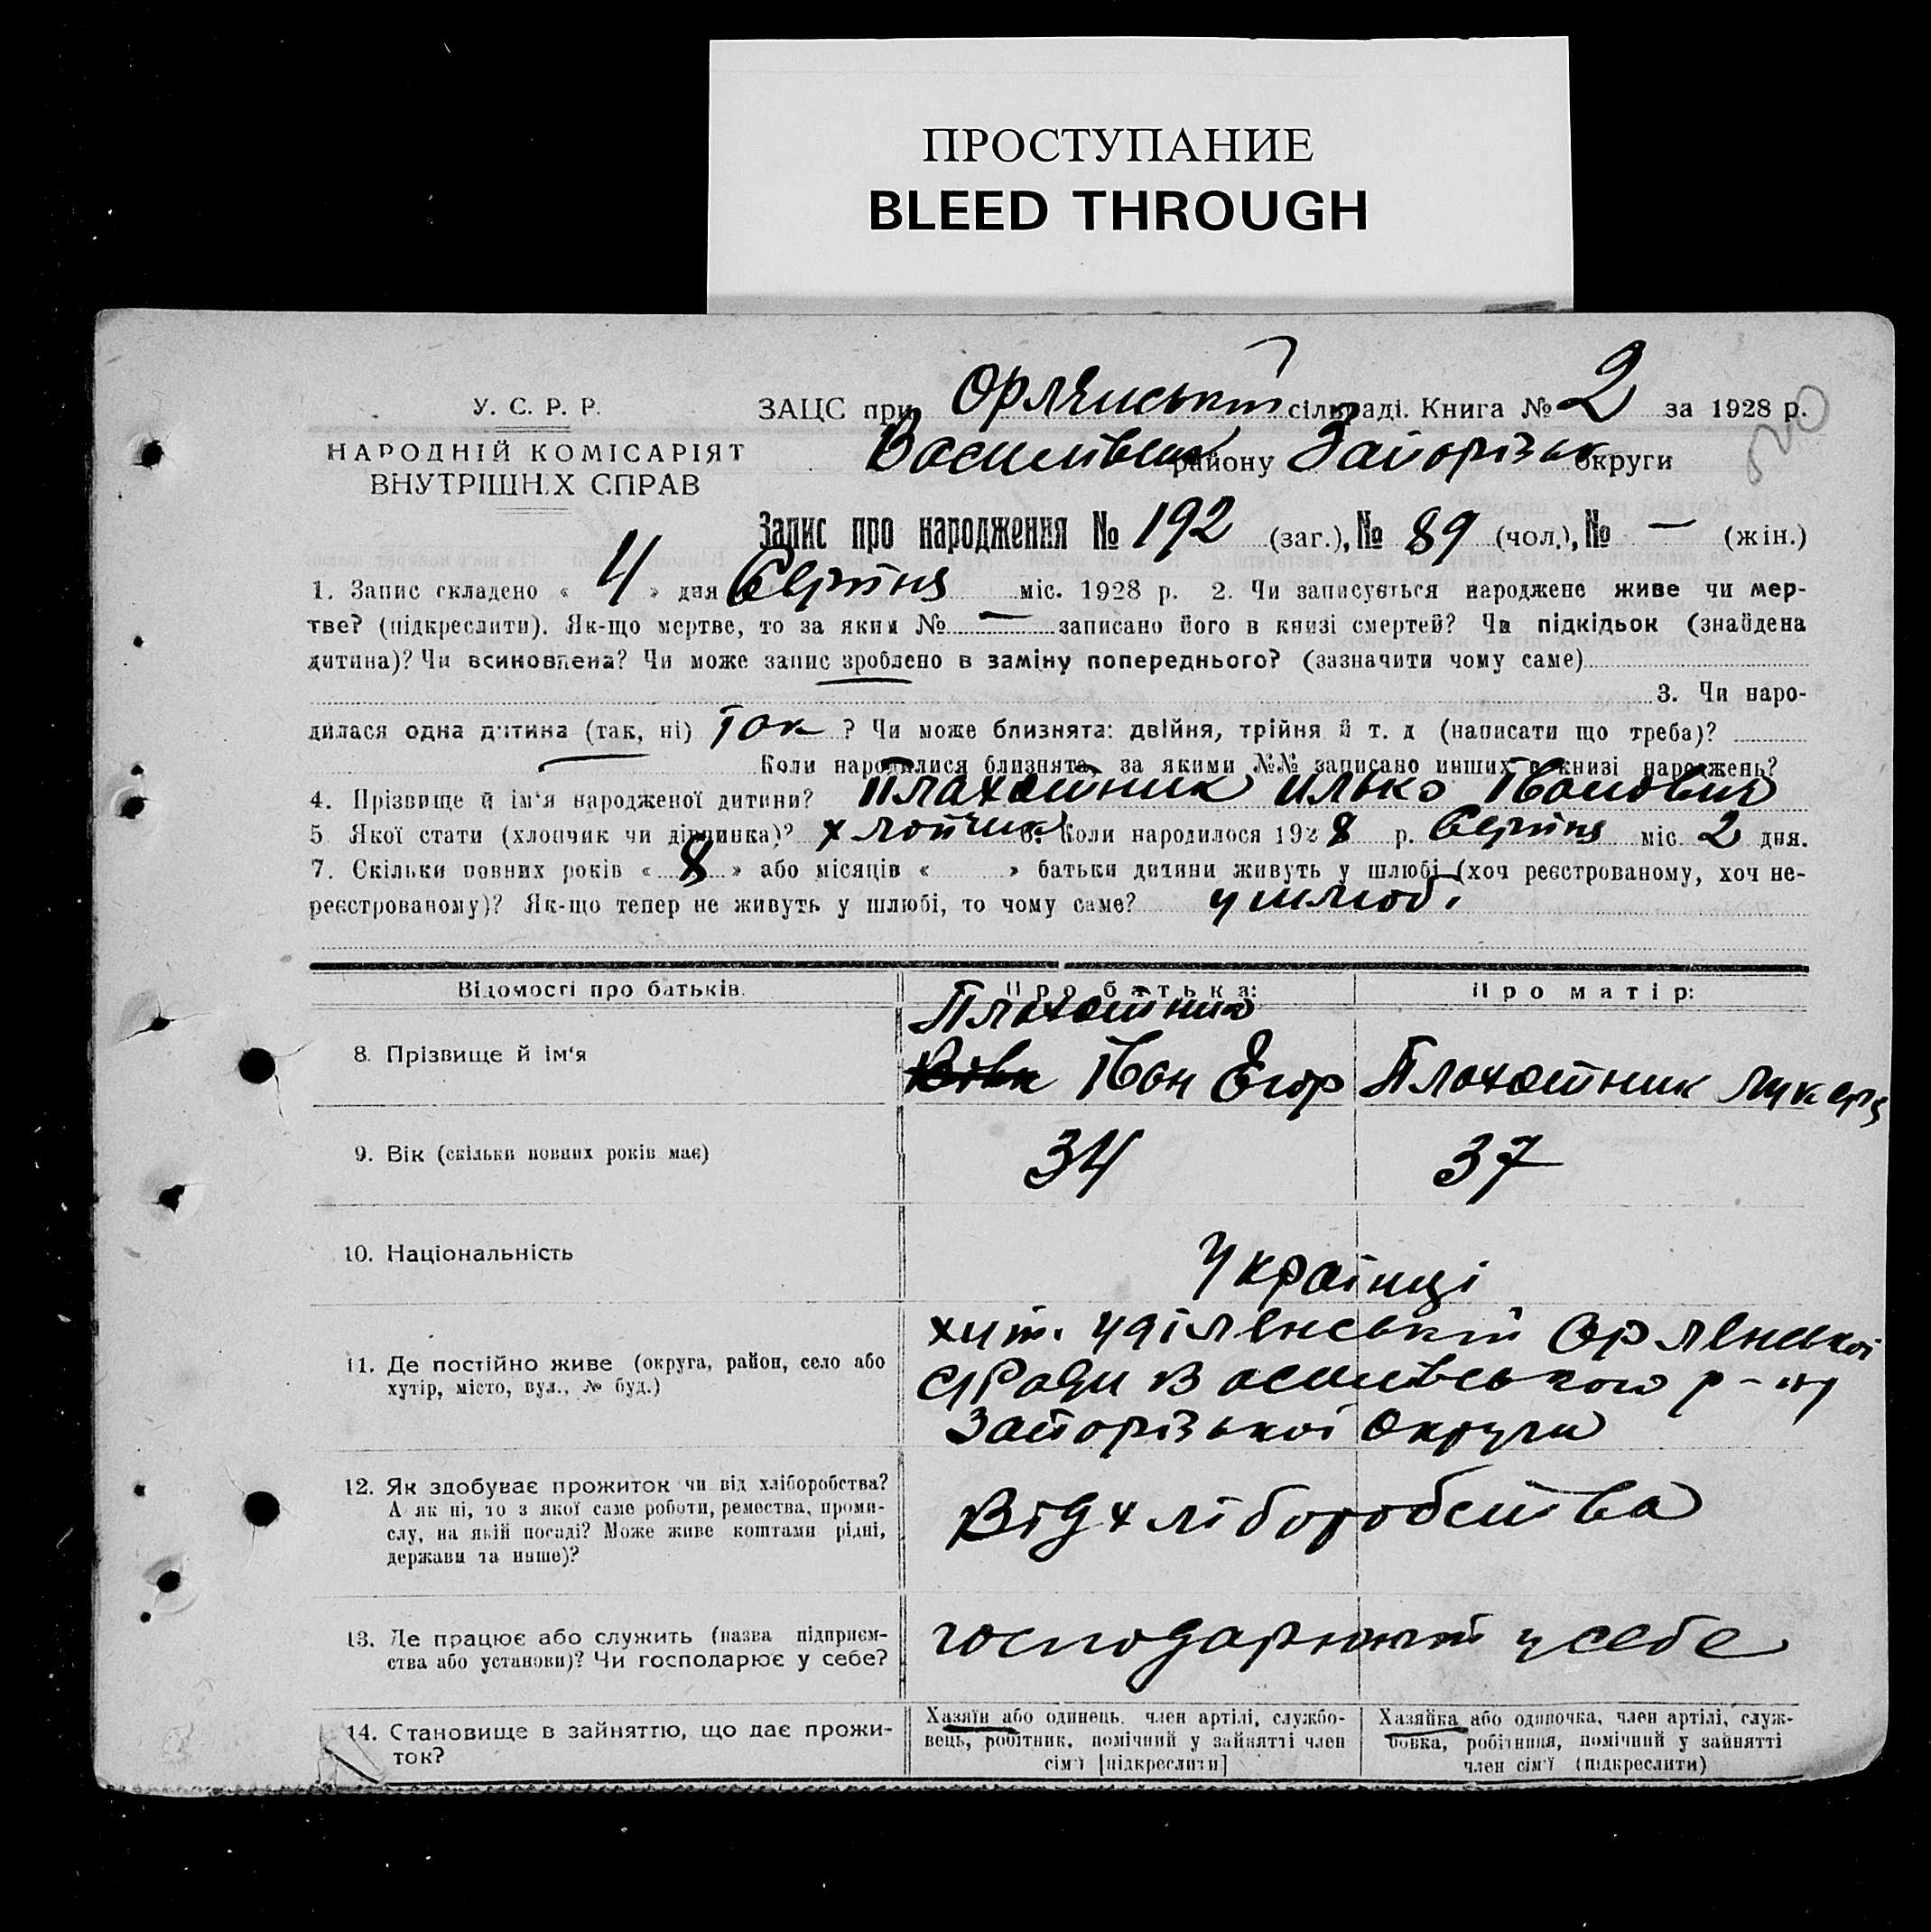 ПРОСТУПАНИЕ
BLEED THROUGH
У. С. Р. Р.
НАРОДНІЙ КОМІСАРІЯТ
ВНУТРІШНІХ СПРАВ
ЗАЦС при Орлянській сільраді. Книга № 2 за 1928 р.
Василівськ району Запорізьк округи
Запис про народження № 192 (заг.), № 89 (чол.), № — (жін.)
1. Запис складено « 4 » дня Серпня міс. 1928 р. 2. Чи записується народжене живе чи мер-
тве? (підкреслити). Як-що мертве, то за яким № — записано його в книзі смертей? Чи підкідьок (знайдена
дитина)? Чи всиновлена? Чи може запис зроблено в заміну попереднього? (зазначити чому саме)
3. Чи наро-
дилася одна дитина (так, ні) Так ? Чи може близнята: двійня, трійня й т. д (написати що треба)?
Коли народилися близнята, за якими №№ записано инших в книзі народжень?
4. Прізвище й ім'я народженої дитини? Плахотник Илько Іванович
5 Якої стати (хлопчик чи дівчинка)? хлопчик 6. Коли народилося 1928 р. Серпня міс. 2 дня.
7. Скільки повних років « 8 » або місяців « » батьки дитини живуть у шлюбі (хоч реєстрованому, хоч не-
реєстрованому)? Як-що тепер не живуть у шлюбі, то чому саме? у шлюбі
Відомості про батьків. Про батька: Про матір:
Плахотник
8. Прізвище й ім'я Іван Егор Плахотник Лукеря
9. Вік (скільки повних років має) 34 37
10. Національність Українці
11. Де постійно живе (округа, район, село або
хутір, місто, вул., № буд.)
хут. Уділянський Орлянської
с/Ради Василівського р-ну
Запорізької Округи
12. Як здобуває прожиток чи від хліборобства?
А як ні, то з якої саме роботи, ремества, проми-
слу, на якій посаді? Може живе коштами рідні,
держави та инше)?
Від хліборобства
13. Де працює або служить (назва підприєм-
ства або установи)? Чи господарює у себе?
господарюють у себе
14. Становище в зайняттю, що дає прожи-
ток?
Хазяїн або одинець. член артілі, службо-
вець, робітник, помічний у зайнятті член
сім'ї [підкреслити]
Хазяйка або одиночка, член артілі, служ-
бовка, робітниця, помічний у зайнятті
член сім'ї (підкреслити)